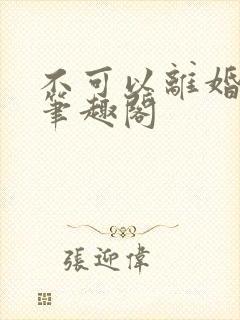 不可以離婚
筆趣閣
張迎偉